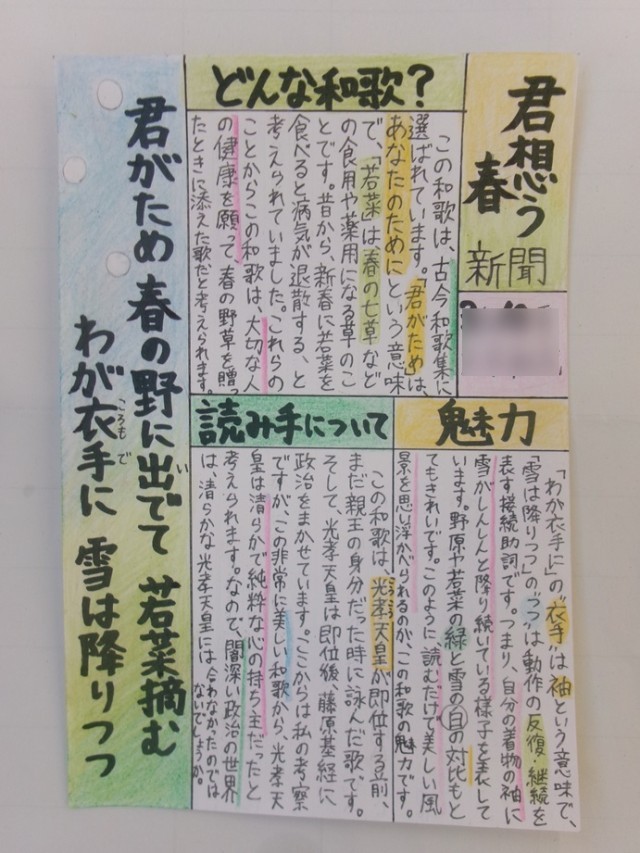 君想う
春
新聞
どんな和歌？
この和歌は、古今和歌集に
選ばれています。「君がため」は、
あなたのためにという意味
で、「若菜」は、春の七草など
の食用や薬用になる草のこ
とです。昔から、新春に若菜を
食べると病気が退散する、と
考えられていました。これらの
ことからこの和歌は、大切な人
の健康を願って、春の野草を贈っ
たときに添えた歌だと考えられます。
魅力
「わが衣手に」の"衣手"は袖という意味で、
「雪は降りつつ」の"つつ"は動作の反復・継続を
表す接続助詞です。つまり、自分の着物の袖に
雪がしんしんと降り続いている様子を表して
います。野原や若菜の緑と雪の白の対比もと
てもきれいです。このように読むだけで美しい風
景を思い浮かべられるのが、この和歌の魅力です。
読み手について
この和歌は、光孝天皇が即位する前、
まだ親王の身分だった時に詠んだ歌です。
そして、光孝天皇は即位後、藤原基経に
政治をまかせています。ここからは私の考察
ですが、この非常に美しい和歌から、光孝天
皇は清らかで純粋な心の持ち主だったと
考えられます。なので、闇深い政治の世界
は、清らかな光孝天皇には合わなかったのでは
ないでしょうか。
君がため 春の野に出でて 若菜摘む
わが衣手に 雪は降りつつ